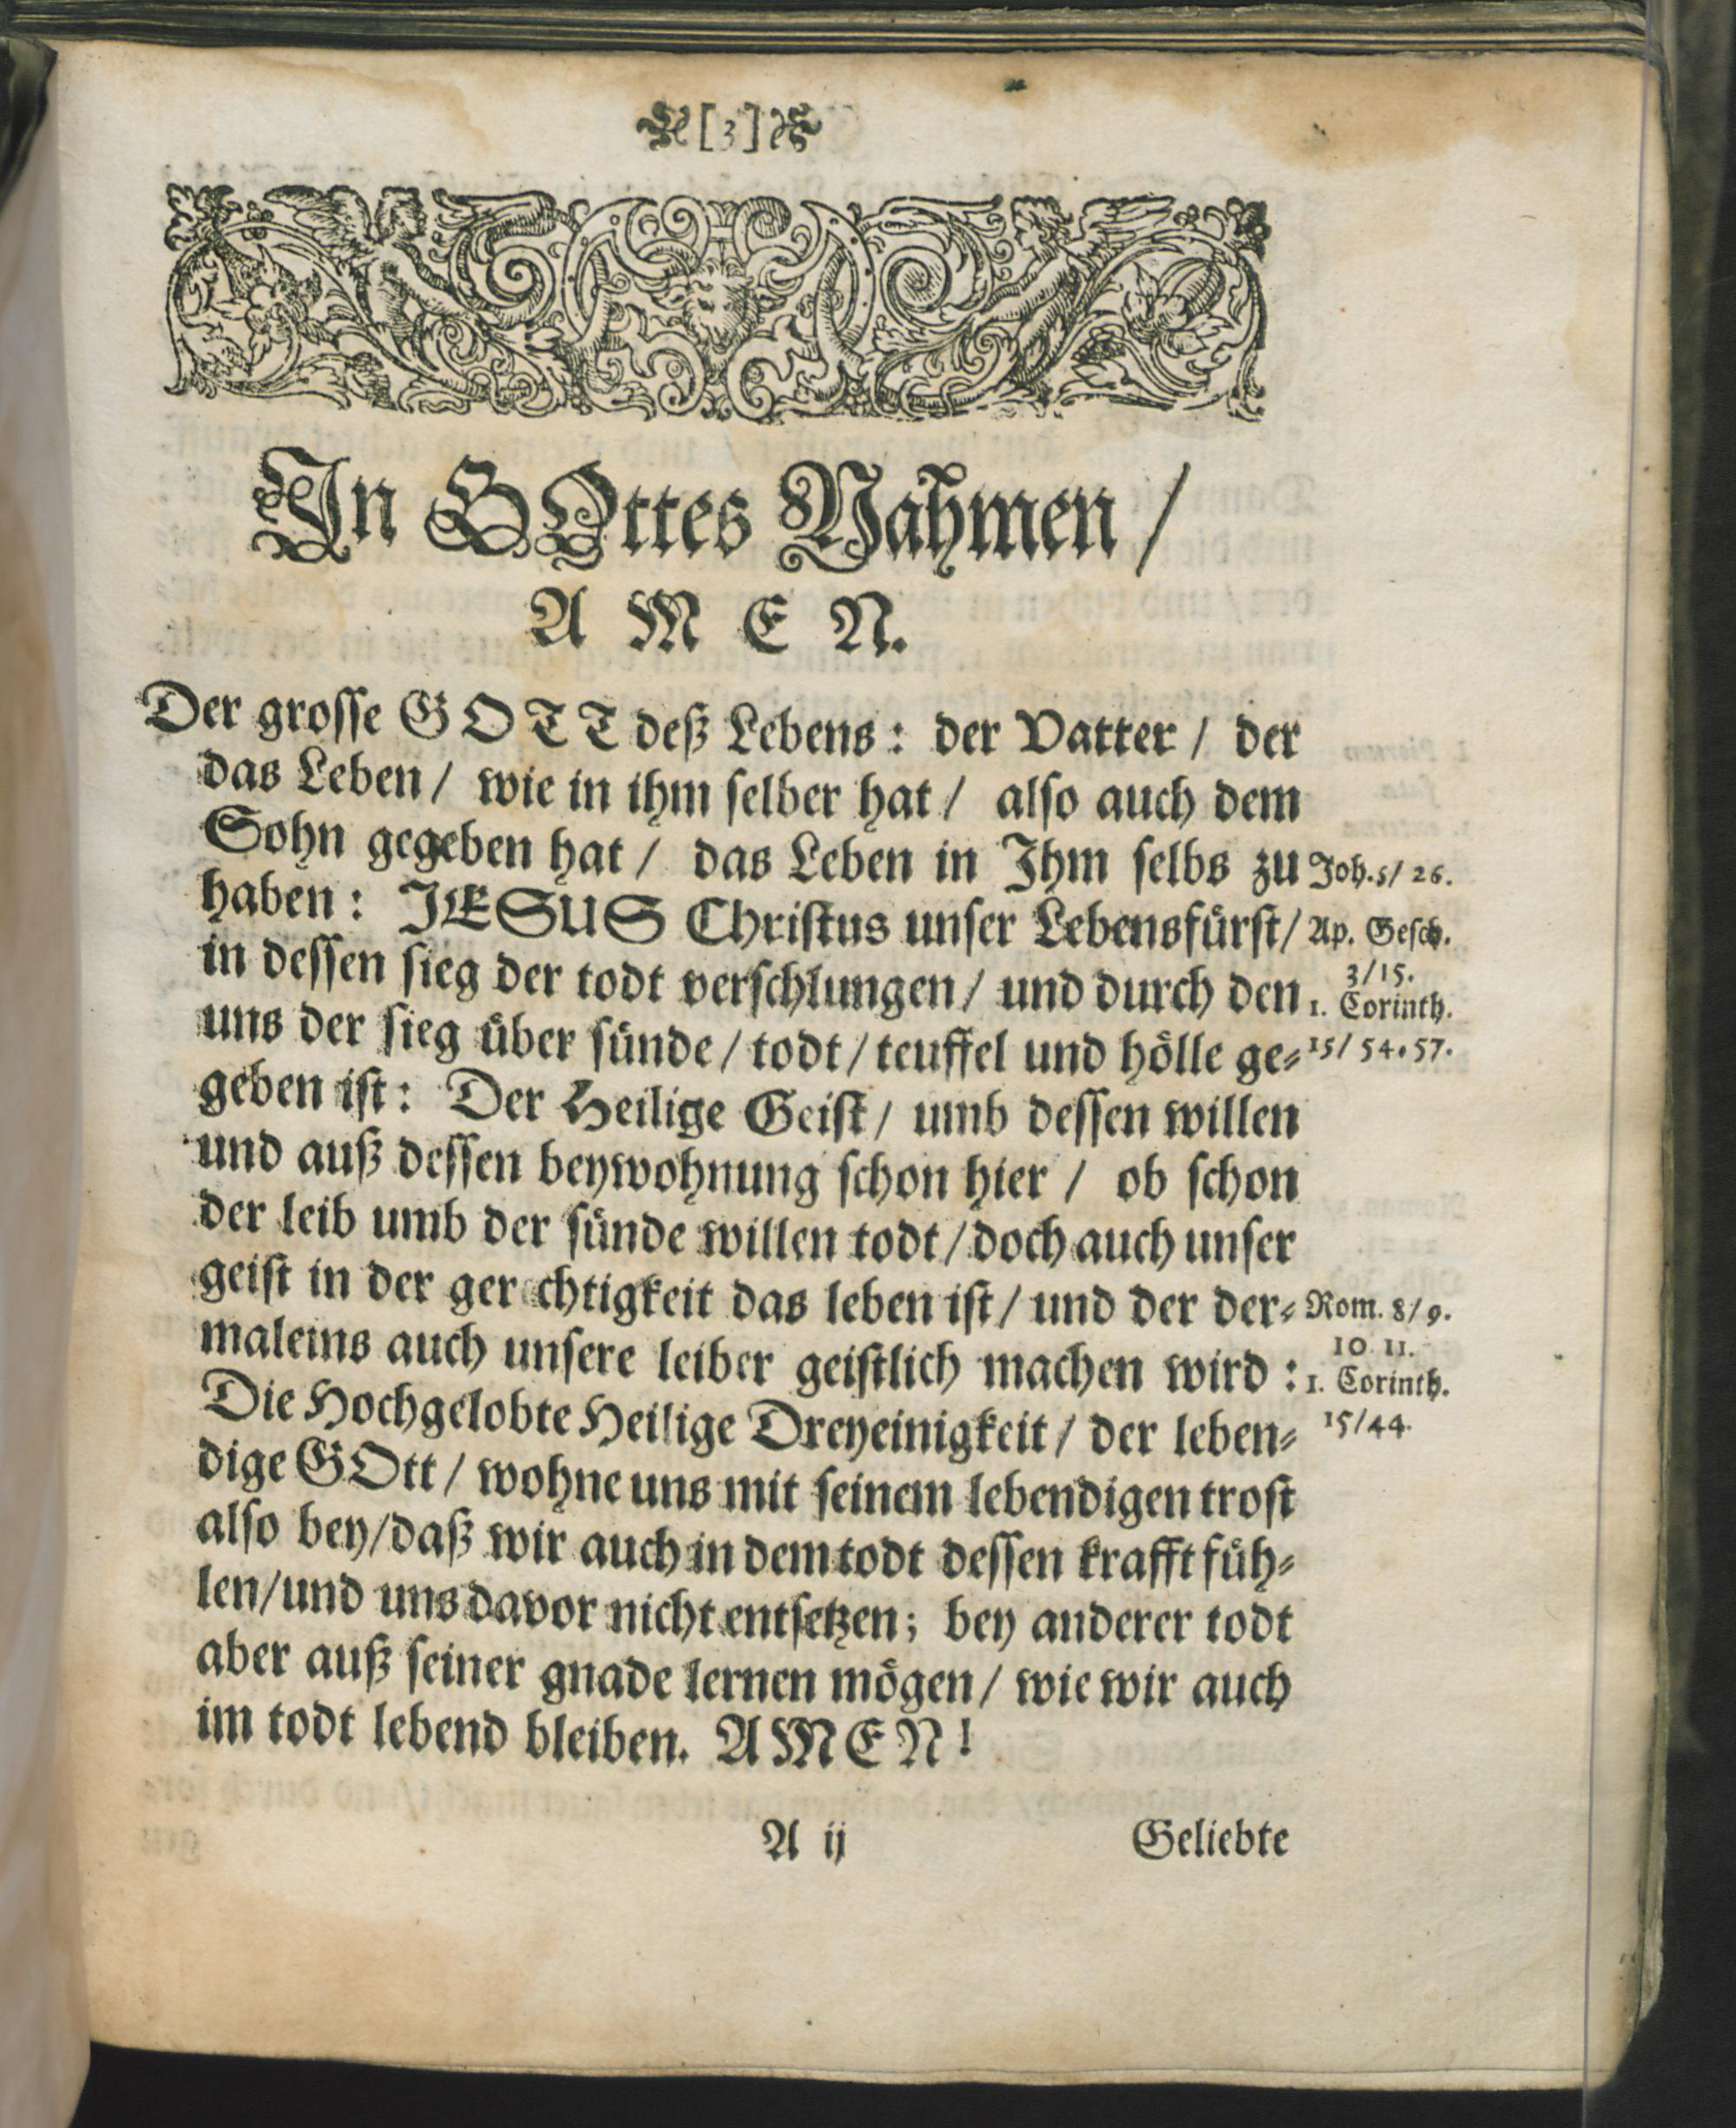 [3]
In GOttes Nahmen /
A M E N.
Der grosse GOTT deß Lebens: der Vatter / der
das Leben / wie in ihm selber hat / also auch dem
Sohn gegeben hat / das Leben in Ihm selbs zu
Joh. 5/ 26.
haben: JESUS Christus unser Lebensfürst/
Ap. Gesch.
3/15.
in dessen sieg der todt verschlungen / und durch den
1. Corinth.
uns der sieg über sünde / todt / teuffel und hölle ge-
15/ 54. 57.
geben ist: Der Heilige Geist / umb dessen willen
und auß dessen beywohnung schon hier / ob schon
der leib umb der sünde willen todt / doch auch unser
geist in der gerechtigkeit das leben ist / und der der-
Rom. 8/ 9.
10 11.
maleins auch unsere leiber geistlich machen wird:
1. Corinth.
Die Hochgelobte Heilige Dreyeinigkeit / der leben-
15/44.
dige GOtt / wohne uns mit seinem lebendigen trost
also bey/daß wir auch in dem todt dessen krafft füh-
len/und uns davor nicht entsetzen; bey anderer todt
aber auß seiner gnade lernen mögen / wie wir auch
im todt lebend bleiben. AMEN!
A ij
Geliebte